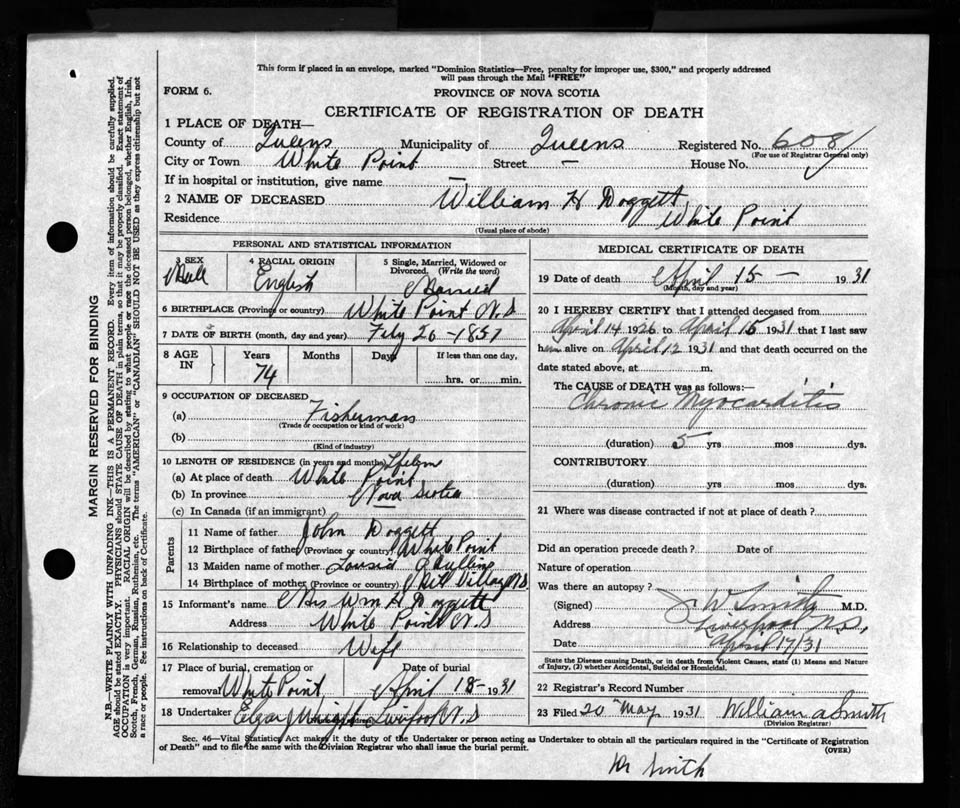 This form if placed in an envelope, marked "Dominion Statistics—Free, penalty for improper use, $300," and properly addressed
will pass through the Mail "FREE"
FORM 6.
PROVINCE OF NOVA SCOTIA
CERTIFICATE OF REGISTRATION OF DEATH
1 PLACE OF DEATH—
County of Queens Municipality of Queens Registered No. 608
(For use of Registrar General only)
City or Town White Point Street — House No.
If in hospital or institution, give name —
2 NAME OF DECEASED William H Doggett
Residence White Point
(Usual place of abode)
PERSONAL AND STATISTICAL INFORMATION
3 SEX Male
4 RACIAL ORIGIN English
5 Single, Married, Widowed or Divorced. (Write the word) Married
6 BIRTHPLACE (Province or country) White Point N.S
7 DATE OF BIRTH (month, day and year) Feby 20 - 1857
8 AGE IN Years 74 Months Days If less than one day, hrs. or min.
9 OCCUPATION OF DECEASED
(a) Fisherman
(Trade or occupation or kind of work)
(b)
(Kind of industry)
10 LENGTH OF RESIDENCE (in years and months)
(a) At place of death White Point
(b) In province Nova Scotia
(c) In Canada (if an immigrant)
Parents
11 Name of father John Doggett
12 Birthplace of father (Province or country) White Point
13 Maiden name of mother
14 Birthplace of mother (Province or country) Mill Village N.S
15 Informant's name Mrs Wm H Doggett
Address White Point N.S
16 Relationship to deceased Wife
17 Place of burial, cremation or removal White Point Date of burial April 18 - 1931
18 Undertaker Edgar Wright Liverpool N.S
MEDICAL CERTIFICATE OF DEATH
19 Date of death April 15 — 1931
(Month, day and year)
20 I HEREBY CERTIFY that I attended deceased from
April 14 1926 to April 15 1931 that I last saw
him alive on April 12 1931 and that death occurred on the
date stated above, at m.
The CAUSE of DEATH was as follows:—
Chronic Myocarditis
(duration) 5 yrs mos dys.
CONTRIBUTORY
(duration) yrs. mos. dys.
21 Where was disease contracted if not at place of death?
Did an operation precede death? Date of
Nature of operation
Was there an autopsy?
(Signed) J W Smith M.D.
Address Liverpool N.S.
Date April 17/31
State the Disease causing Death, or in death from Violent Causes, state (1) Means and Nature
of Injury, (2) whether Accidental, Suicidal or Homicidal.
22 Registrar's Record Number
23 Filed 20 May 1931 William A Smith
(Division Registrar)
Sec. 46—Vital Statistics Act makes it the duty of the Undertaker or person acting as Undertaker to obtain all the particulars required in the "Certificate of Registration
of Death" and to file the same with the Division Registrar who shall issue the burial permit.
(OVER)
Dr Smith
MARGIN RESERVED FOR BINDING
N.B.—WRITE PLAINLY WITH UNFADING INK—THIS IS A PERMANENT RECORD. Every item of information should be carefully supplied.
AGE should be stated EXACTLY. PHYSICIANS should STATE CAUSE OF DEATH in plain terms, so that it may be properly classified. Exact statement of
OCCUPATION is very important. RACIAL ORIGIN will be described by stating to what people or race the deceased person belonged, whether English, Irish,
Scotch, French, German, Russian, Ruthenian, etc. The terms "AMERICAN" or "CANADIAN" SHOULD NOT BE USED as they express citizenship but not
a race or people. See instructions on back of Certificate.